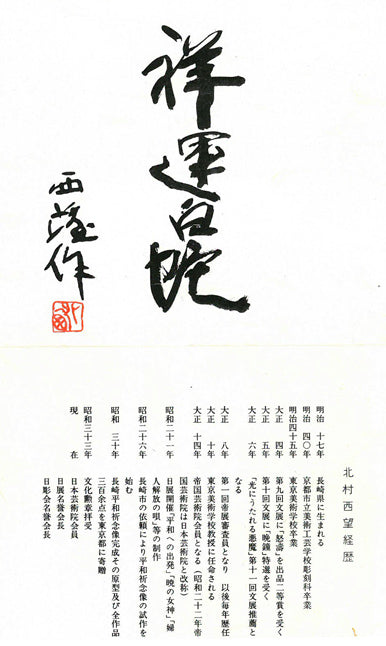 祥運白蛇
西望作
北村西望経歴
明治 十七年 長崎県に生まれる
明治 四〇年 京都市立美術工芸学校彫刻科卒業
明治四十五年 東京美術学校卒業
大正 四年 第九回文展に「怒濤」を出品二等賞を受く
大正 五年 第十回文展に「晩鐘」特選を受く
大正 六年 「光にうたれる悪魔」第十一回文展推薦と
なる
大正 八年 第一回帝展審査員となり 以後毎年歴任
大正 十年 東京美術学校教授に任命される
大正 十四年 帝国芸術院会員となる(昭和二十二年帝
国芸術院は日本芸術院と改称)
昭和二十一年 日展開催「平和への出発」「暁の女神」「婦
人解放の唄」等の制作
昭和二十六年 長崎市の依頼により平和祈念像の試作を
始む
昭和 三十年 長崎平和祈念像完成その原型及び全作品
三百余点を東京都に寄贈
昭和三十三年 文化勲章拝受
現 在 日本芸術院会員
日展名誉会長
日彫会名誉会長